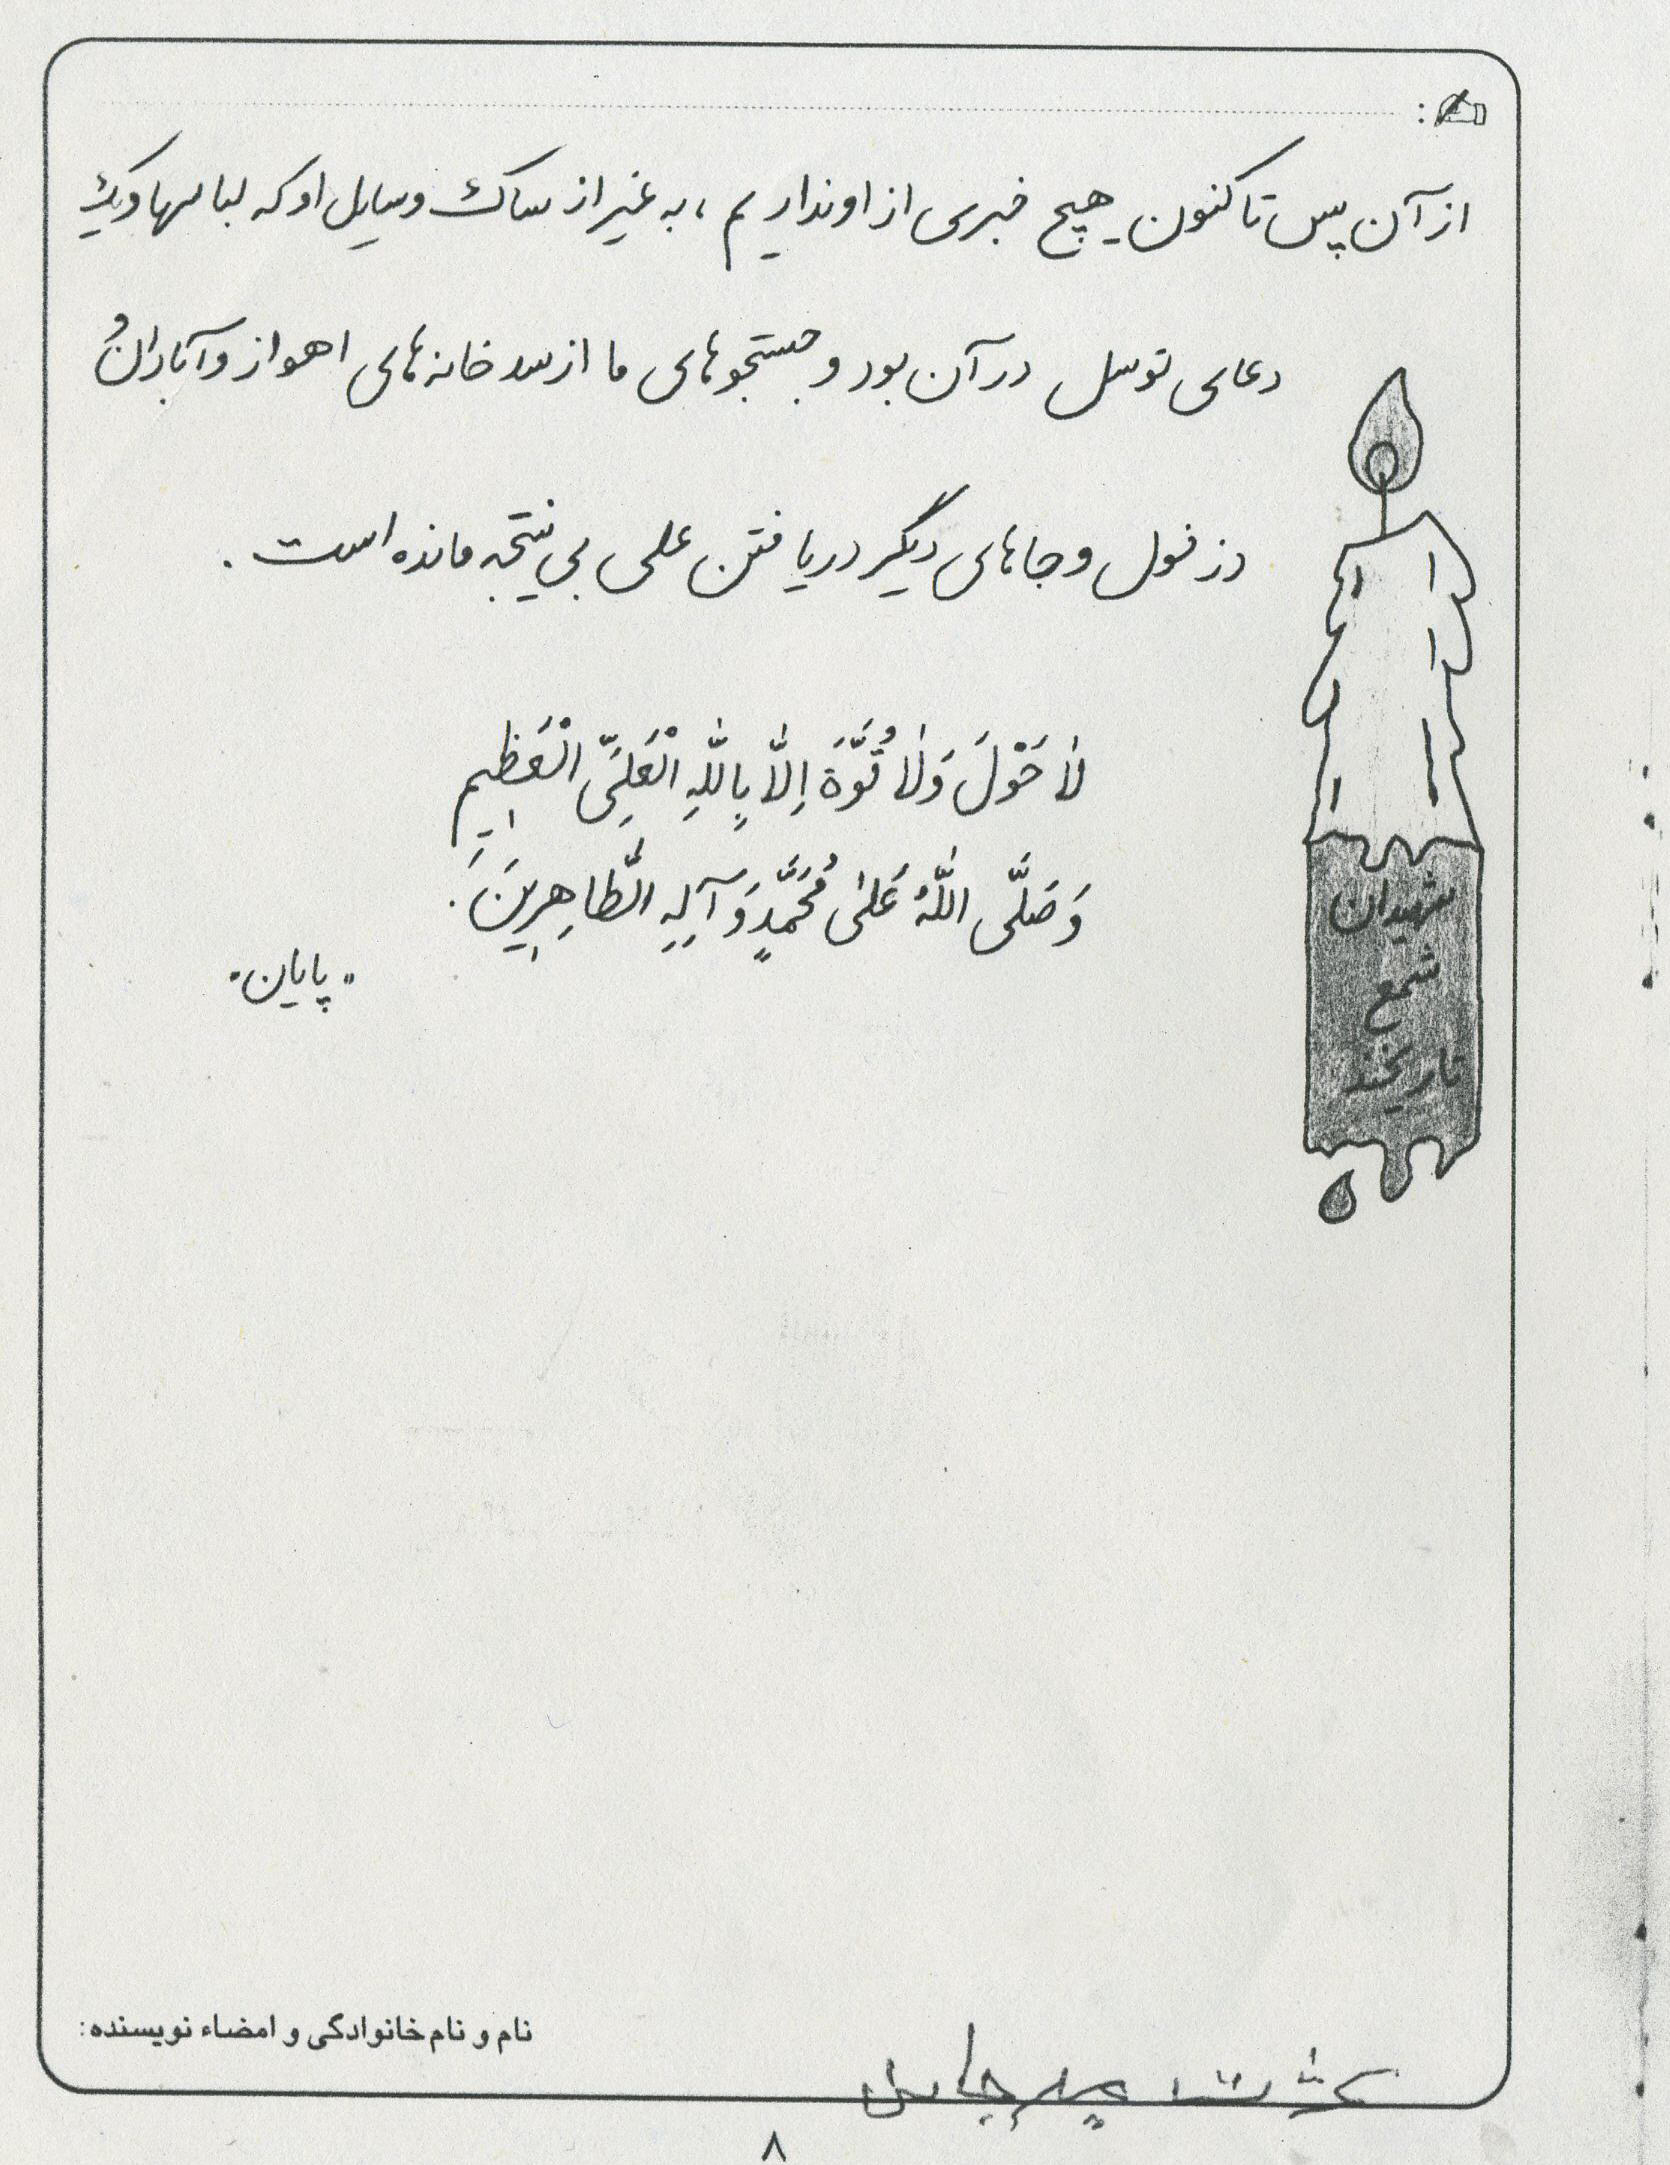 از آن پس تا کنون هیچ خبری از او نداریم ، به غیر از ساک وسایل او که لباسها و یک
دعای توسل در آن بود و جستجوهای ما از سردخانه‌های اهواز و آبادان و
دزفول و جاهای دیگر در یافتن علی بی نتیجه مانده است .
لاٰ حَوْلَ وَلاٰ قُوَّةَ اِلاّٰ بِاللّٰهِ الْعَلِيِّ الْعَظٖيمِ
وَ صَلَّی اللّٰهُ عَلیٰ مُحَمَّدٍ وَ آلِهِ الطّٰاهِرٖينَ .
"پایان"
شهیدان
شمع
تاریخند
نام و نام خانوادگی و امضاء نویسنده:
۸